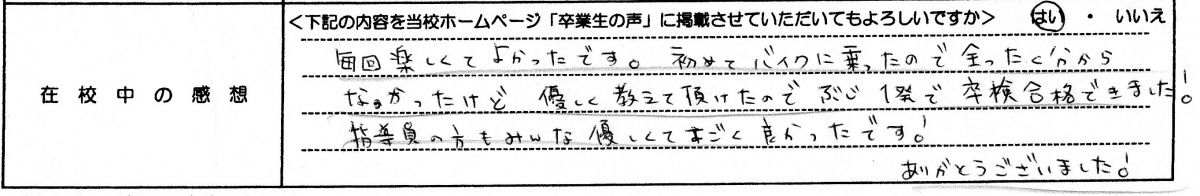 <下記の内容を当校ホームページ「卒業生の声」に掲載させていただいてもよろしいですか> はい ・ いいえ
在校中の感想
毎回楽しくてよかったです。初めてバイクに乗ったので全ったく分から
なかったけど 優しく教えて頂けたので ぶじ1発で卒検合格できました!
指導員の方もみんな優しくてすごく良かったです!
ありがとうございました!